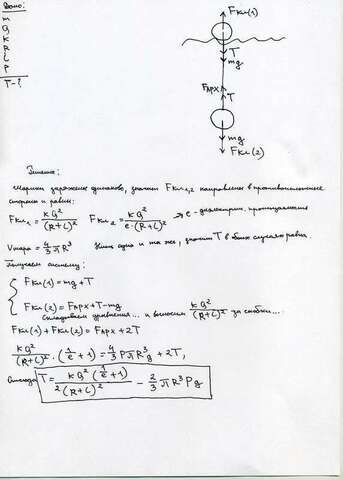 Дано:
m
Q
K
R
L
P
T-?
Fкл(1)
T
mg
Fарх
T
mg
Fкл(2)
Решение:
Шарики заряжены одинаково, значит Fкл1,2 направлены в противоположные
стороны и равны:
Fкл1 = kQ²/(R+L)² Fкл2 = kQ²/e·(R+L)² → e - диэлектрич. проницаемость
Vшара = 4/3 πR³ Нить одна и та же, значит T в обоих случаях равна.
Получаем систему:
{ Fкл(1) = mg+T
Fкл(2) = Fарх+T-mg
Складываем уравнения... и выносим kQ²/(R+L)² за скобки...
Fкл(1)+Fкл(2) = Fарх+2T
kQ²/(R+L)² · (1/e+1) = 4/3 PπR³g + 2T,
Отсюда T = kQ²(1/e+1)/2(R+L)² - 2/3 πR³Pg